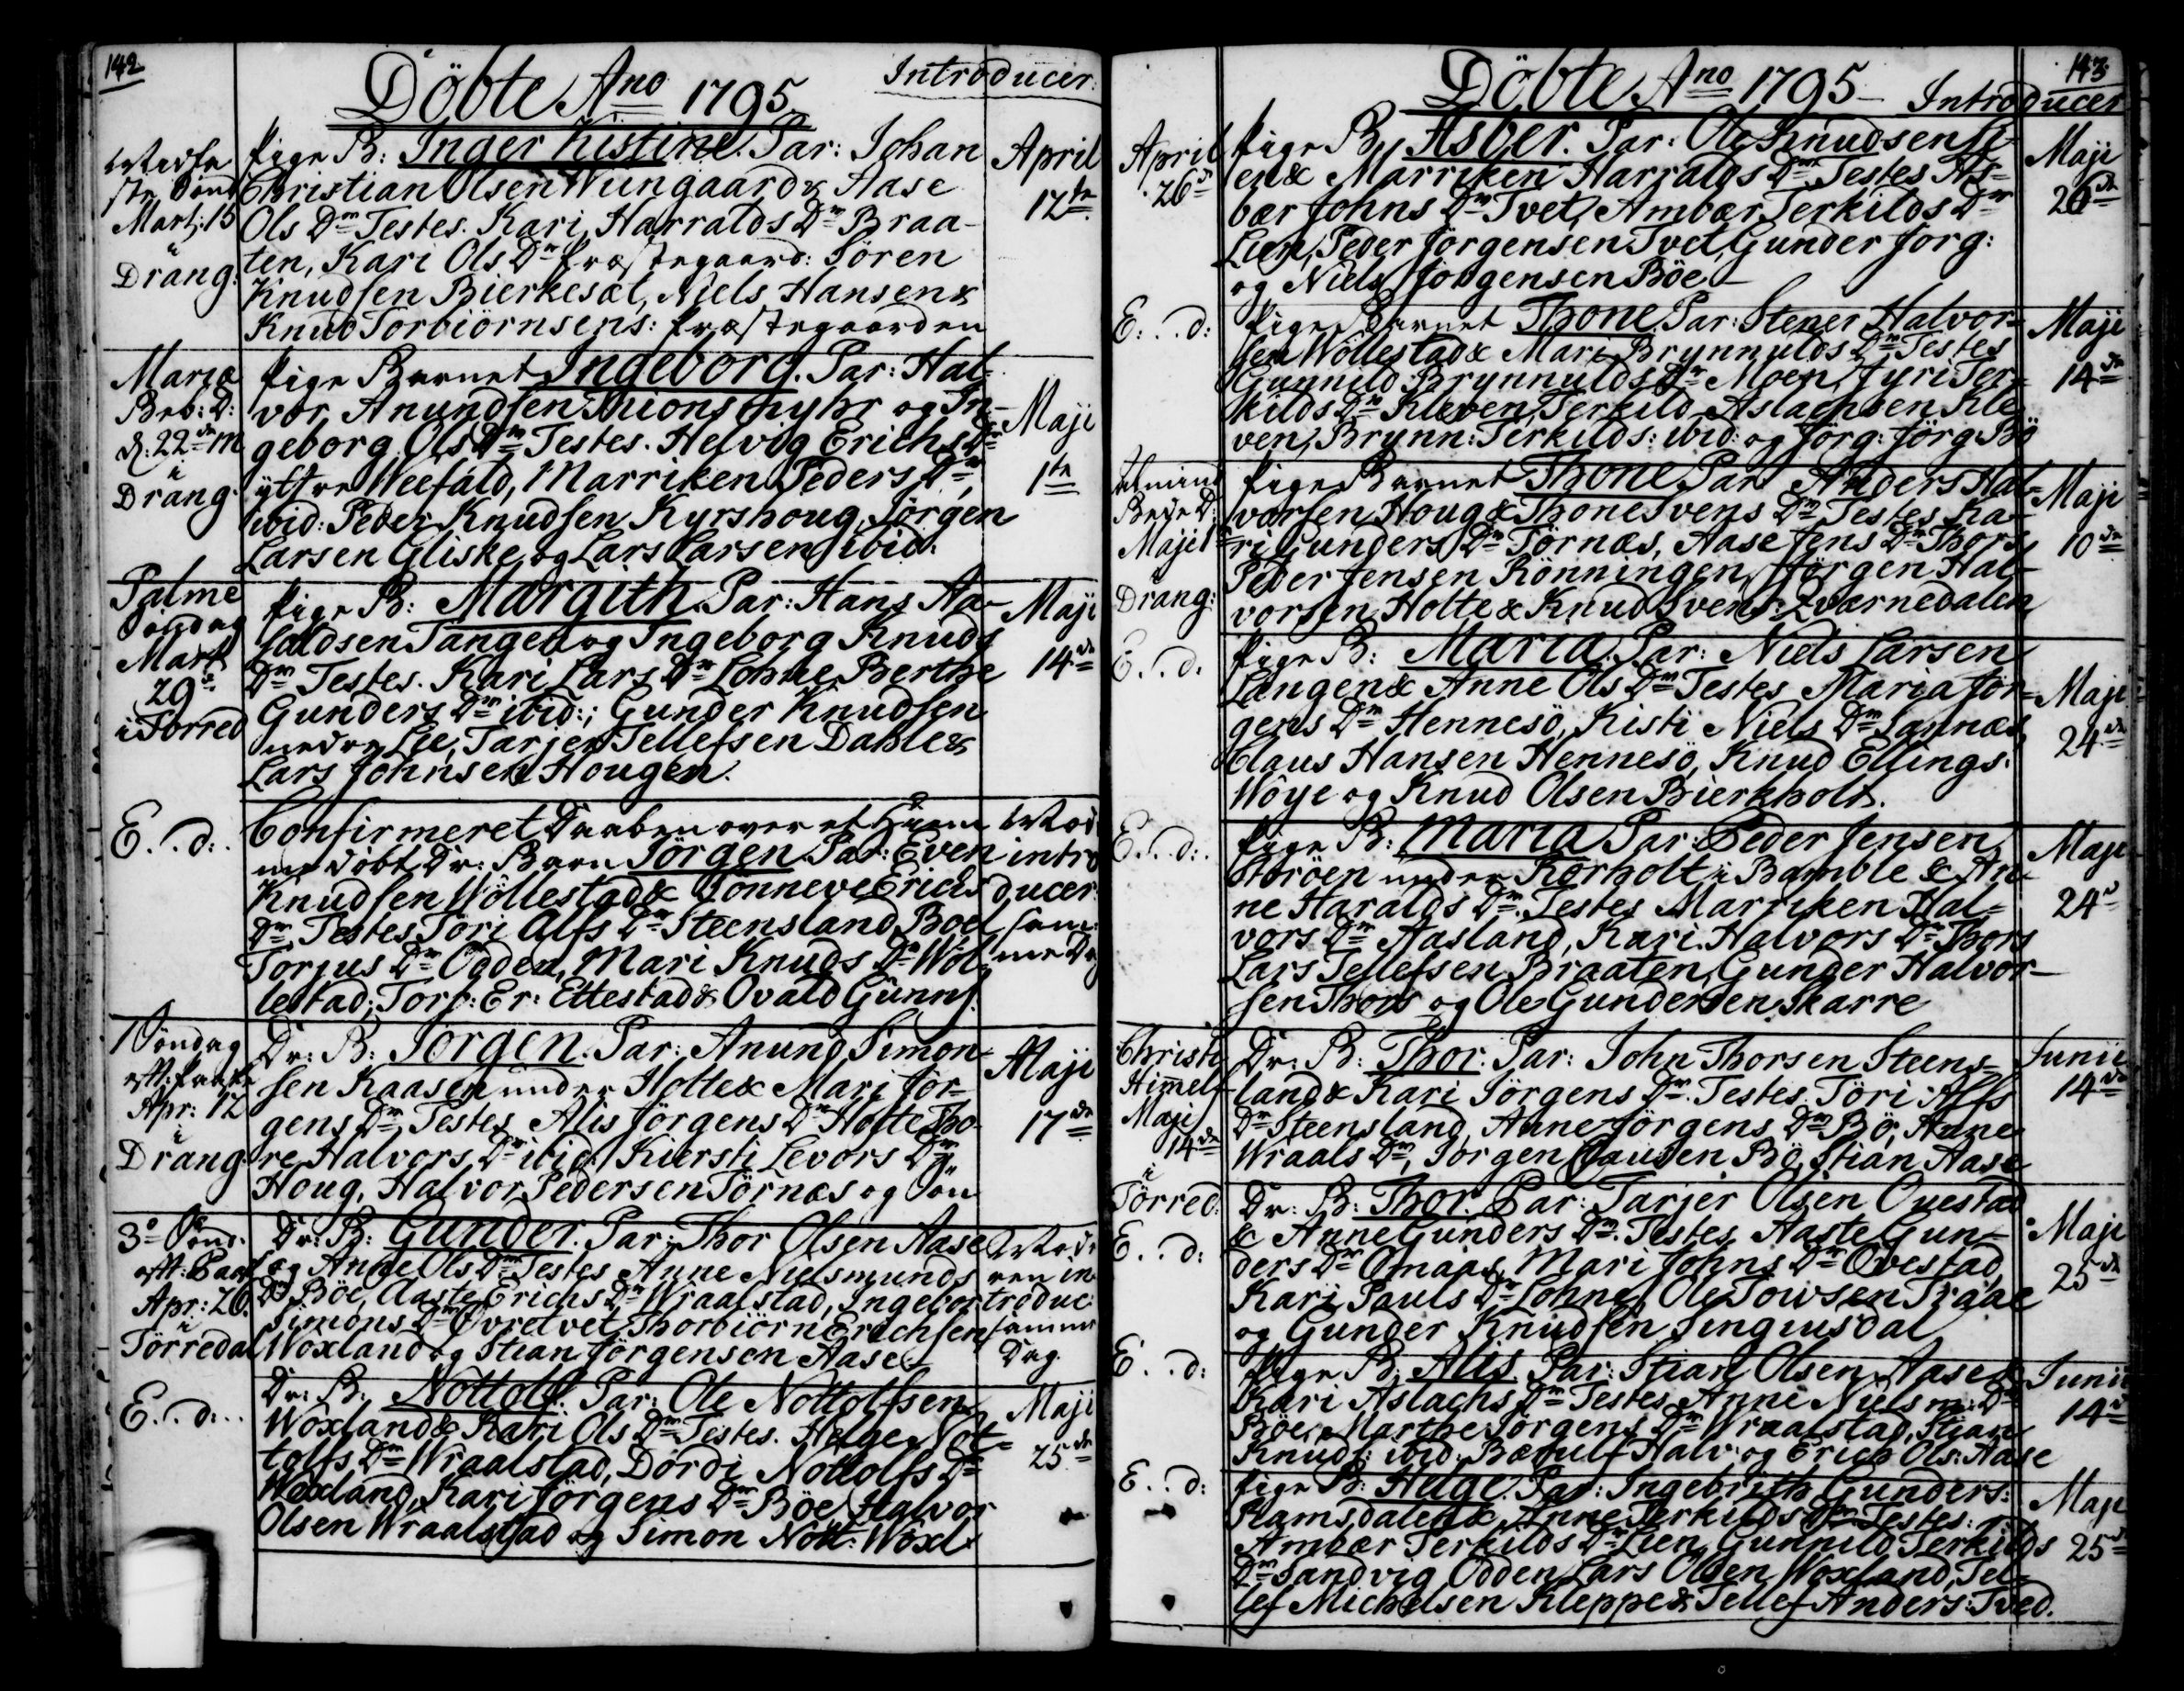 142
Döbte Ano 1795
Introducer:
Sönd
Mart: 15
i
Drang:
Pige B: Inger Kistine. Par: Johan
Christian Olsen Wungaard & Aase
Ols Dr Testes. Kari Harralds Dr Braa-
ten, Kari Ols Dr Præstegaard: Sören
Knudsen Bierkesæt, Niels Hansen &
Knud Torbiörnsens: Præstegaarden
April
12te
Mariæ
Beb: D:
d: 22de M
i
Drang:
Pige Barnet Ingeborg. Par: Hal-
vor Anundsen og In-
geborg Ols Dr Testes. Helvig Erichs Dr
yttre Weefald, Marriken Peders Dr,
ibid: Peder Knudsen Kyrshoug, Jörgen
Larsen Gliske og Lars Larsen ibid:
Maji
1te
Palme
Söndag
Mart
29de
i Törred
Pige B: Margith. Par: Hans Aa-
saldsen Tangen og Ingeborg Knuds
Dr Testes. Kari Lars Dr Lohne, Berthe
Gunders Dr ibid:; Gunder Knudsen
nedre Lie, Tarjer Tellefsen Dahle &
Lars Johnsen Hougen.
Maji
14de
E. . d:
Confirmeret Daaben over et Hiem
me döbt Dr: Barn Jörgen. Par: Even
Knudsen Wöllestad & Gonneve Erichs
Dr Testes Töri Alfs Dr Steensland, Boel
Torjus Dr Odden, Mari Knuds Dr Wöl
lestad; Torb: Er: Ettestad & Ovald Gunns.
intro
ducer:
sam
me Dag
1 Söndag
eft: Paaske
Apr: 12
i
Drang
Dr: B: Jörgen. Par: Anund Simon-
sen Kaasen under Holte & Mari Jör-
gens Dr Testes Alis Jörgens Dr Holte Tho-
re Halvors Dr ibid: Kiersti Levors Dr
Houg, Halvor Pedersen Törnæs og Sön
Maji
17de
3die Sönd:
eft: Paask
Apr: 26.
i
Törredal
Dr: B: Gunder. Par: Thor Olsen Aase
og Anne Ols Dr Testes Anne Nielsmunds
Dr Böe, Aaste Erichs Dr Wraalstad, Ingebor
Simons Dr Övretvet, Thorbiörn Erichsen
Woxland og Stian Jörgensen Aase
ren in
troduc:
samme
Dag.
E. . d: .
Dr: B. Nottolf. Par: Ole Nottolfsen
Woxland & Kari Ols Dr Testes. Helge Not-
tolfs Dr Wraalstad, Dördi Nottolfs Dr
Woxland, Kari Jörgens Dr Böe, Halvor
Olsen Wraalstad og Simon Nott: Woxl.
Maji
25de
143
Döbte Ano 1795
Introducer
April
26de
Pige B. Asber. Par: Ole Knudsen Li
en & Marriken Harralds Dr Testes As-
bær Johns Dr Tvet, Ambær Terkilds Dr
Lien, Peder Jörgensen Tvet, Gunder Jörg:
og Niels Jörgensen Böe
Maji
26de
E. . d:
Pige Barnet Thone. Par: Stener Halvor-
sen Wöllestad & Mari Brynnulds Dr Testes
Gunnild Brynnulds Dr Moen, Jyri Ter-
kilds Dr Kleven, Terkild Aslachsen Kle-
ven, Brynn: Terkilds: ibid: og Jörg: Jörg Bö
Maji
14de
Almind
Bede D:
Maji 1
Drang:
Pige Barnet Thone Par: Anders Hal-
vorsen Houg & Thone Svens Dr Testes Ka-
ri Gunders Dr Törnæs, Aase Jens Dr Thors
Peder Jensen Rönningen, Jörgen Hal-
vorsen Holte & Knud Svens: Qværnedalen
Maji
10de
E. . d:
Pige B: Maria. Par: Niels Larsen
Langen & Anne Ols Dr Testes Maria Jör-
gens Dr Hennesö, Kisti Niels Dr Sannæs,
Claus Hansen Hennesö, Knud Ellings.
Wöye og Knud Olsen Bierkholt.
Maji
24de
E. . d:
Pige B: Maria Par: Peder Jensen
Storöen under Rörholt i Bamble & An-
ne Haralds Dr. Testes Marriken Hal-
vors Dr Aasland, Kari Halvors Dr Thors
Lars Tellefsen Braaten, Gunder Halvor-
sen Thors og Ole Gundersen Skarre
Maji
24de
Christi
Himelf
Maji
14de
i
Törred:
Dr: B: Thor. Par: John Thorsen Steens-
land & Kari Jörgens Dr. Testes. Töri Alfs
Dr Steensland, Anne Jörgens Dr Bö, Anne
Wraals Dr, Jörgen Clausen Bö, Stian Aase
Junii
14de
E. . d:
Dr: B: Thor. Par: Tarjer Olsen Ovestad
& Anne Gunders Dr. Testes Aaste Gun-
ders Dr Omaas, Mari Johns Dr Ovestad,
Kari Pauls Dr Lohne, Ole Towsen Traae
og Gunder Knudsen Singiusdal
Maji
25de
E. . d:
Pige B. Alis. Par: Stian Olsen Aase &
Kari Aslachs Dr Testes Anne Nielsm: Dr
Böe, Marthe Jörgens Dr Wraalstad, Stian
Knuds: ibid. Bærulf Halv: og Erich Ols: Aase
Junii
14de
E. . d:
Pige B: Helge. Par: Ingebrith Gunders:
Plamsdalen & Anne Terkilds Dr Testes:
Ambær Terkilds Dr Lien, Gunnild Terkilds
Dr Sandvig Odden, Lars Olsen Woxland, Tel-
lef Michelsen Kleppe & Tellef Anders: Tved.
Maji
25de